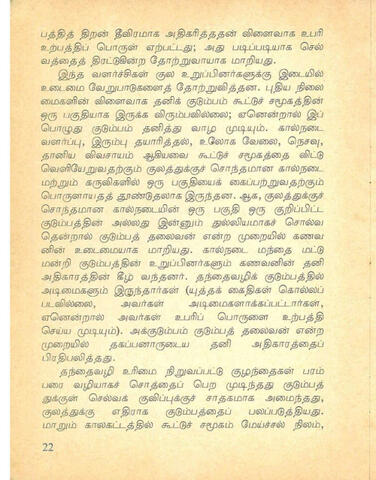 பத்தித் திறன் தீவிரமாக அதிகரித்ததன் விளைவாக உபரி
உற்பத்திப் பொருள் ஏற்பட்டது; அது படிப்படியாக செல்
வத்தைத் திரட்டுகின்ற தோற்றுவாயாக மாறியது.
இந்த வளர்ச்சிகள் குல உறுப்பினர்களுக்கு இடையில்
உடைமை வேறுபாடுகளைத் தோற்றுவித்தன. புதிய நிலை
மைகளின் விளைவாக தனிக் குடும்பம் கூட்டுச் சமூகத்தின்
ஒரு பகுதியாக இருக்க விரும்பவில்லை; ஏனென்றால் இப்
பொழுது குடும்பம் தனித்து வாழ முடியும். கால்நடை
வளர்ப்பு, இரும்பு தயாரித்தல், உலோக வேலை, நெசவு,
தானிய விவசாயம் ஆகியவை கூட்டுச் சமூகத்தை விட்டு
வெளியேறுவதற்கும் குலத்துக்குச் சொந்தமான கால்நடை
மற்றும் கருவிகளில் ஒரு பகுதியைக் கைப்பற்றுவதற்கும்
பொருளாயதத் தூண்டுதலாக இருந்தன. ஆக, குலத்துக்குச்
சொந்தமான கால்நடையின் ஒரு பகுதி ஒரு குறிப்பிட்ட
குடும்பத்தின் அல்லது இன்னும் துல்லியமாகச் சொல்வ
தென்றால் குடும்பத் தலைவன் என்ற முறையில் கணவ
னின் உடைமையாக மாறியது. கால்நடை மந்தை மட்டு
மன்றி குடும்பத்தின் உறுப்பினர்களும் கணவனின் தனி
அதிகாரத்தின் கீழ் வந்தனர். தந்தைவழிக் குடும்பத்தில்
அடிமைகளும் இருந்தார்கள் (யுத்தக் கைதிகள் கொல்லப்
படவில்லை, அவர்கள் அடிமைகளாக்கப்பட்டார்கள்,
ஏனென்றால் அவர்கள் உபரிப் பொருளை உற்பத்தி
செய்ய முடியும்). அக்குடும்பம் குடும்பத் தலைவன் என்ற
முறையில் தகப்பனாருடைய தனி அதிகாரத்தைப்
பிரதிபலித்தது.
தந்தைவழி உரிமை நிறுவப்பட்டு குழந்தைகள் பரம்
பரை வழியாகச் சொத்தைப் பெற முடிந்தது குடும்பத்
துக்குள் செல்வக் குவிப்புக்குச் சாதகமாக அமைந்தது,
குலத்துக்கு எதிராக குடும்பத்தைப் பலப்படுத்தியது.
மாறும் காலகட்டத்தில் கூட்டுச் சமூகம் மேய்ச்சல் நிலம்,
22